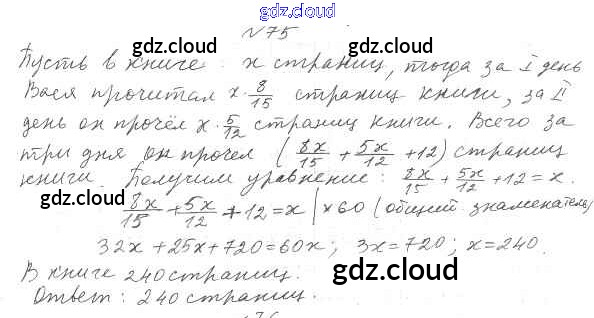 gdz.cloud
№75
gdz.cloud gdz.cloud
Пусть в книге: x страниц, тогда за I день
Вася прочитал x · 8/15 страниц книги, за II
день он прочёл x · 5/12 страниц книги. Всего за
три дня он прочел (8x/15 + 5x/12 + 12) страниц
книги. Получим уравнение: 8x/15 + 5x/12 + 12 = x.
8x/15 + 5x/12 + 12 = x | × 60 (общий знаменатель)
32x + 25x + 720 = 60x; 3x = 720; x = 240.
gdz.cloud gdz.cloud
В книге 240 страниц.
Ответ: 240 страниц.